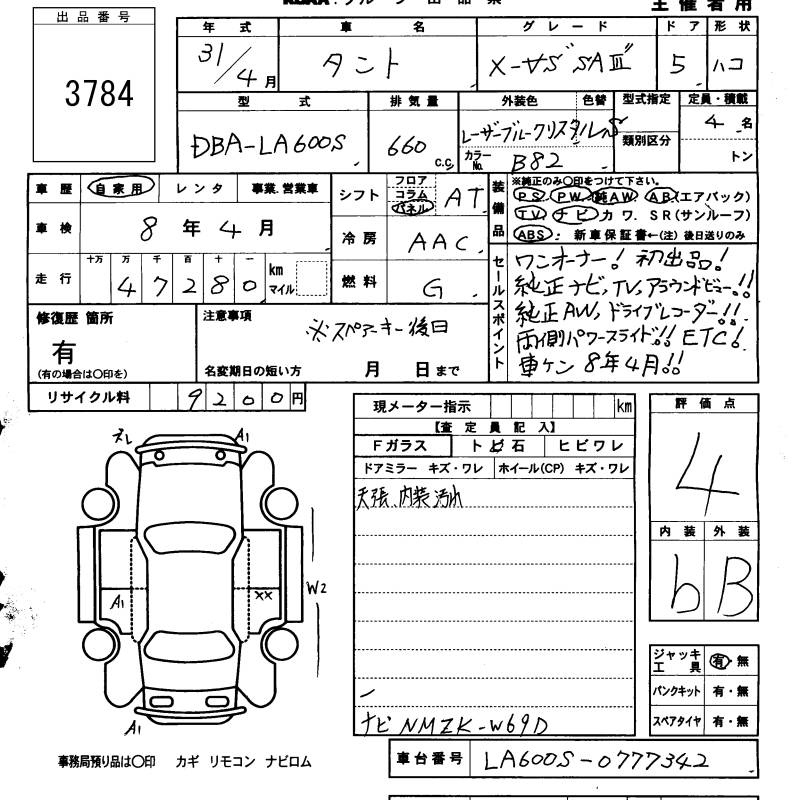 出品番号
3784
主催者用
年式 車名 グレード ドア 形状
31/4月 タント X-VS SAⅢ 5 ハコ
型式 排気量 外装色 色替 型式指定 定員・積載
DBA-LA600S 660 c.c. レーザーブルークリスタルS 類別区分 4名
カラーNo. B82 トン
車歴 自家用 レンタ 事業.営業車
シフト フロア コラム パネル AT
装備品 ※純正のみ〇印をつけて下さい。
PS. PW. 純AW. AB.(エアバック)
TV. ナビ カワ. SR(サンルーフ)
ABS. 新車保証書←(注)後日送りのみ
車検 8年4月
冷房 AAC
走行 十万 万 千 百 十 一
47280 km マイル
燃料 G
セールスポイント ワンオーナー! 初出品!
純正ナビ,TV,アラウンドビュー!!
純正AW,ドライブレコーダー!!
両側パワースライド!! ETC!
車ケン 8年4月!!
修復歴 箇所
有
(有の場合は〇印を)
注意事項
※スペアーキー後日
名変期日の短い方 月 日まで
リサイクル料 9200円
現メーター指示 km
【査定員記入】
Fガラス トビ石 ヒビワレ
ドアミラー キズ・ワレ ホイール(CP) キズ・ワレ
天張、内装汚れ
ナビ NMZK-W69D
評価点
4
内装 外装
b B
ジャッキ 工具 有・無
パンクキット 有・無
スペアタイヤ 有・無
A1
A1
XX
W2
A1
事務局預り品は〇印 カギ リモコン ナビロム
車台番号 LA600S-0777342